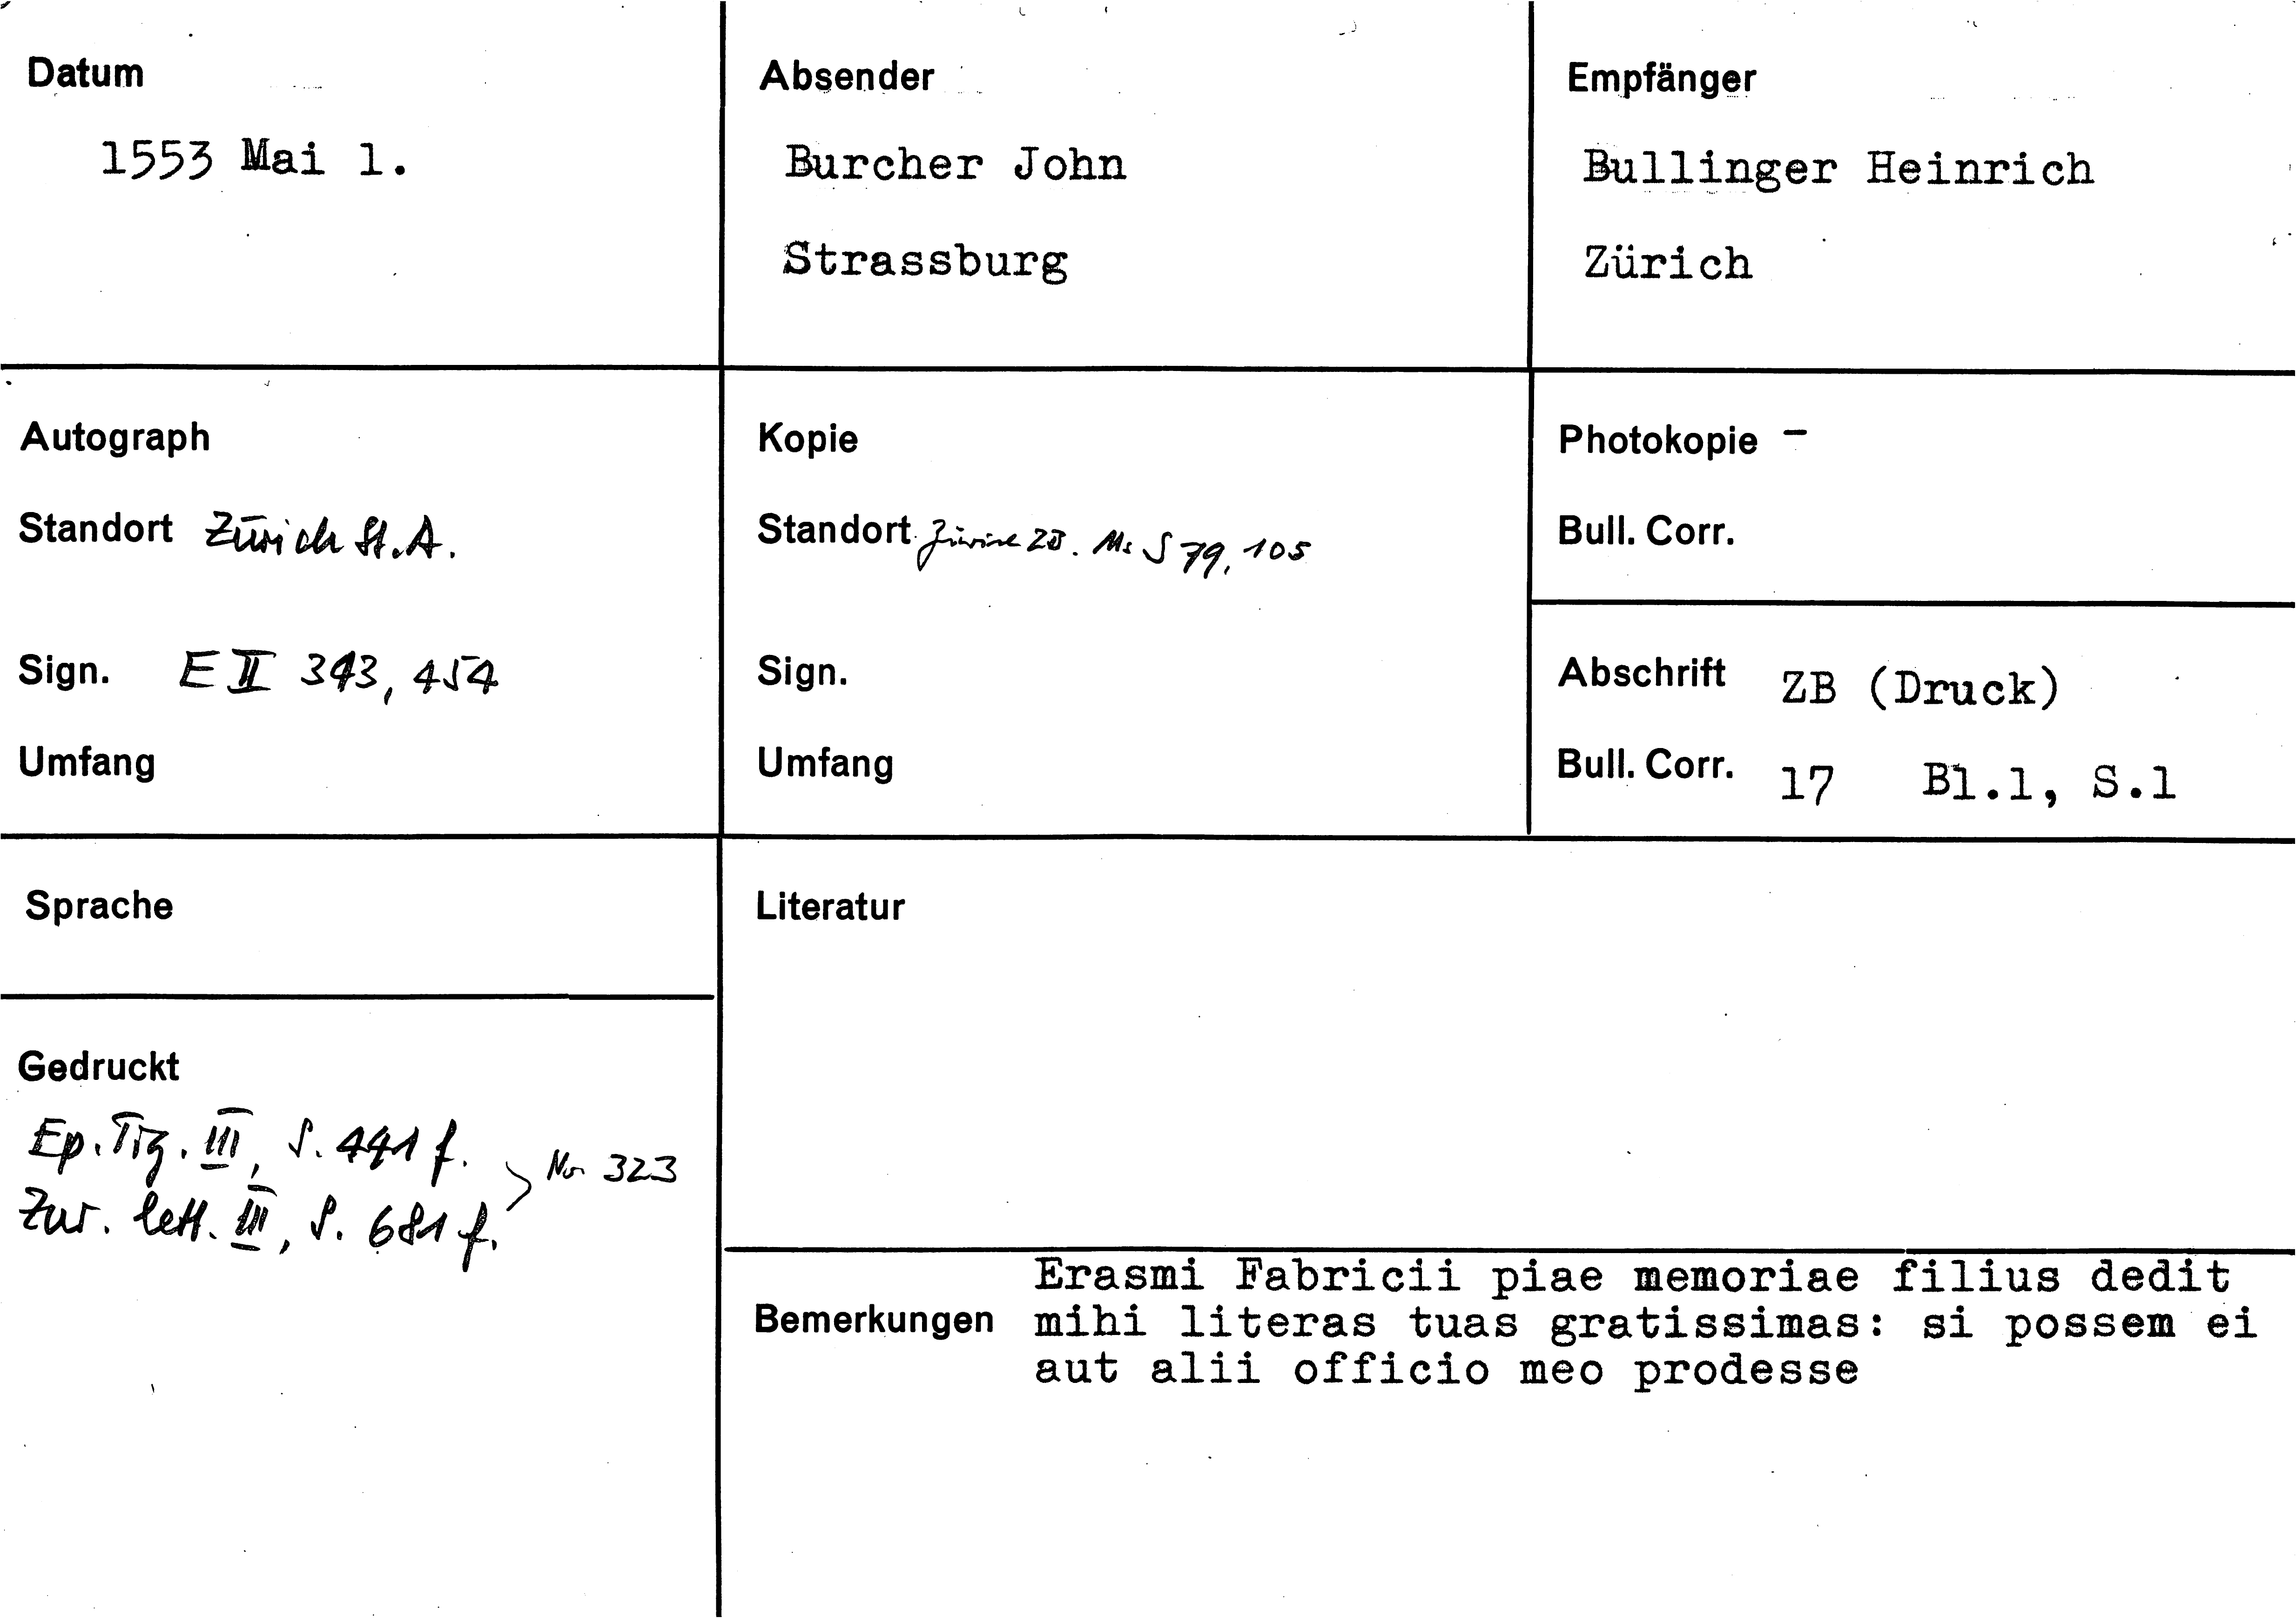 Datum
1553 Mai 1.
Absender
Burcher John
Strassburg
Empfänger
Bullinger Heinrich
Zürich
Autograph
Standort Zürich St.A.
Sign. E II 343, 454
Umfang
Kopie
Standort Zürich ZB. Ms S 79, 105
Sign.
Umfang
Photokopie -
Bull. Corr.
Abschrift ZB (Druck)
Bull. Corr. 17 Bl.1, S.1
Sprache
Gedruckt
Ep. Tig. III, S. 441 f.
Zur. lett. III, S. 681 f.
No 323
Literatur
Bemerkungen
Erasmi Fabricii piae memoriae filius dedit
mihi literas tuas gratissimas: si possem ei
aut alii officio meo prodesse